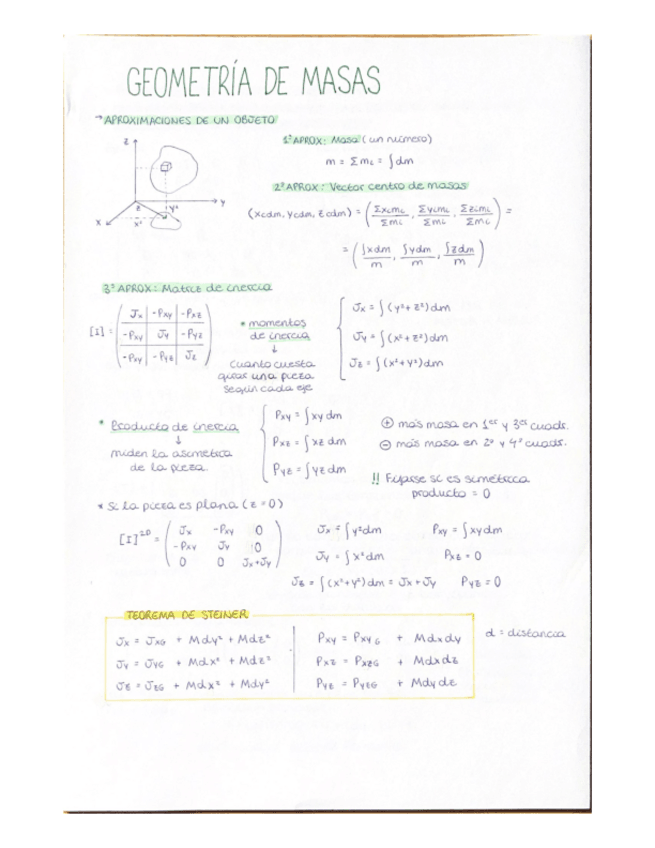 GEOMETRÍA DE MASAS
→ APROXIMACIONES DE UN OBJETO
1ª APROX: Masa (un número)
m = Σmi = ∫dm
2ª APROX: Vector centro de masas
(xcdm, ycdm, zcdm) = (Σximi/Σmi, Σyimi/Σmi, Σzimi/Σmi) =
= (∫xdm/m, ∫ydm/m, ∫zdm/m)
z
y
x
z
x²
y²
3ª APROX: Matriz de inercia
[I] = (Jx | -Pxy | -Pxz
-Pxy | Jy | -Pyz
-Pxy | -Pyz | Jz)
* momentos
de inercia
↓
cuanto cuesta
girar una pieza
según cada eje
Jx = ∫(y²+z²)dm
Jy = ∫(x²+z²)dm
Jz = ∫(x²+y²)dm
* Producto de inercia
↓
miden la asimetría
de la pieza.
Pxy = ∫xy dm
Pxz = ∫xz dm
Pyz = ∫yz dm
⊕ más masa en 1er y 3er cuadr.
⊖ más masa en 2º y 4º cuadr.
!! Fijarse si es simétrica
producto = 0
* Si la pieza es plana (z=0)
[I]²ᴰ = (Jx -Pxy 0
-Pxy Jy 0
0 0 Jx+Jy)
Jx = ∫y²dm Pxy = ∫xydm
Jy = ∫x²dm Pxz = 0
Jz = ∫(x²+y²)dm = Jx+Jy Pyz = 0
TEOREMA DE STEINER
Jx = JxG + Mdy² + Mdz²
Jy = JyG + Mdx² + Mdz²
Jz = JzG + Mdx² + Mdy²
Pxy = PxyG + Mdxdy
Pxz = PxzG + Mdxdz
Pyz = PyzG + Mdydz
d = distancia